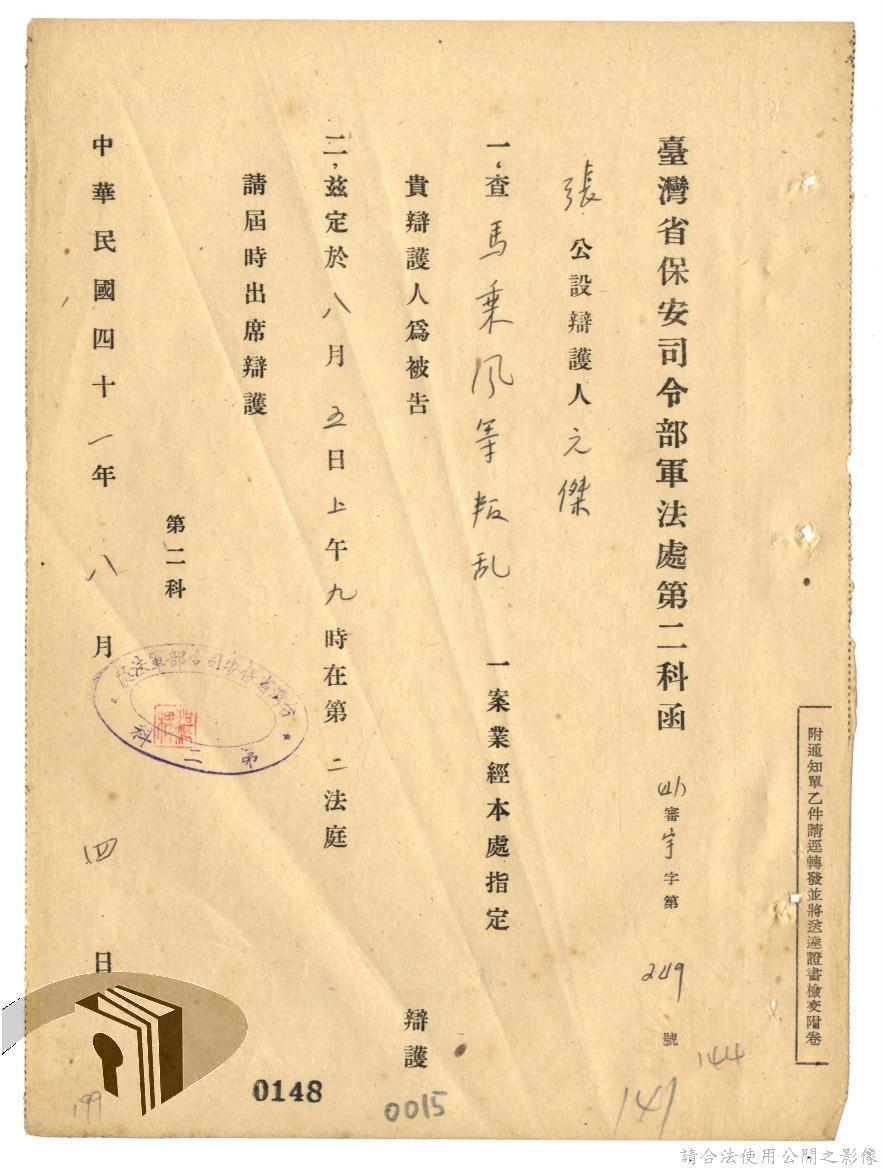 臺灣省保安司令部軍法處第二科函 (41)審字第 249 號
張公設辯護人元傑
一、查馬乘风等叛乱 一案業經本處指定
貴辯護人爲被告 辯護
二、茲定於八月五日上午九時在第二法庭
請屆時出席辯護
第二科
中華民國四十一年八月四日
附通知單乙件請逕轉發並將送達證書檢交附卷
台灣省保安司令部軍法處
第二科
144
141
0015
0148
199
請合法使用公開之影像